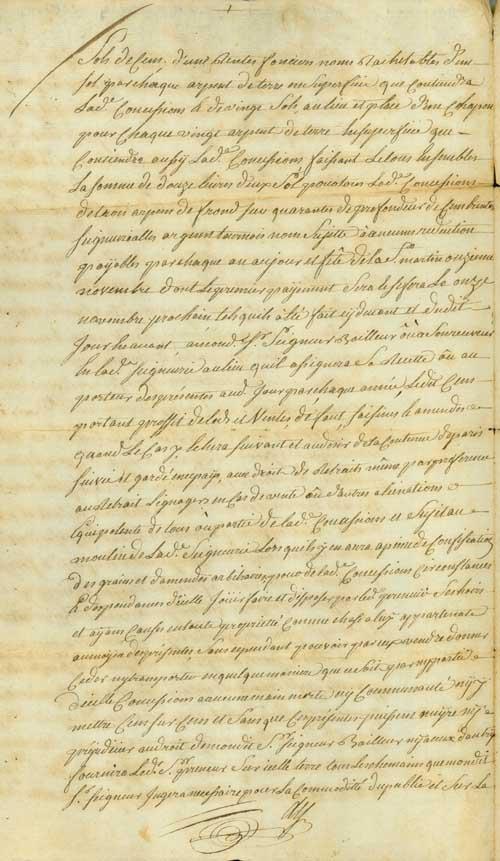 Sols de Cens d'une Rentes foncieres nons Rachetables d'un
sol par chaque arpent de terre en Superficie que Contiendra
Lade. Concessions & de vingt Sols au lieu et place d'un Chapon
pour Chaque vingt arpent de terre en superficie que
Contiendra aussy Lade. Concessions, faisant Le tous Ensembles
La somme de douze livres deux Sol, pour toutes Lade. Concessions
de trois arpens de frond sur quarantes de profondeur de Cens Rentes
Seigneurialles argent tournois nons Sujette a aucunes reduction
payables par chaque an au jour et fête de la St. martin onzieme
novembre dont Le premier payement Sera le fera Le onze
novembre prochain
Jour en avant, a mond. Sr. Seigneur Bailleur où a Son receveur
En lade. Seigneurie au lieu quil assignera Sa Recette où au
porteur des presentes aud. Jour par chaque année, Ledit Cens
portant proffit de lods et Ventes, deffaut, saisine & amendes
quand Le Cas y Echera suivant et au desir de la Coutume de paris
suivie et gardé en ce pais, aux droit de Retraits même par preference
au Retrait Lignager en Cas de vente où d'autres alienations
Equipolente de tous où partie de lade. Concessions et Sujet au
moulin de Lade. Seigneurie Lorsquil y en aura a peine de Confiscation
Des grains et d'amendes arbitraires, pour de lade. Concessions Circonstances
& dependances d'icelle Jouir faire et disposer par led. preneur Ses hoirs
et ayans Cause en toute proprieté Comme chose a luy appartenante
au moyen des presentes, Sans Cependant pouvoir par eux vendre donner
Ceder ny transporter en quelque maniere que ce Soit par
D'icelle Concessions a aucune main morte ny Communauté ny y
mettre Cens sur Cens et Sans que Ces presentes puissent nuire ny
préjudicier au droit de mondit Sr. Seigneur Bailleur ny a ceux d'autruy
fournira Led. Sr. preneur Sur icelle terre tous Les chemains que mondit
Sr. Seigneur Jugera necessaire pour La Commodité du public et Sur La